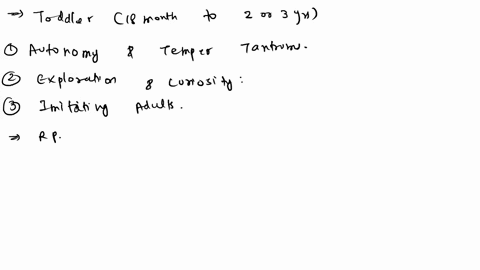 → Toddler (18 month to 2 or 3 yrs)
① Autonomy & Temper Tantrum.
② Exploration & Curiosity:
③ Imitating Adults.
⇒ RP.